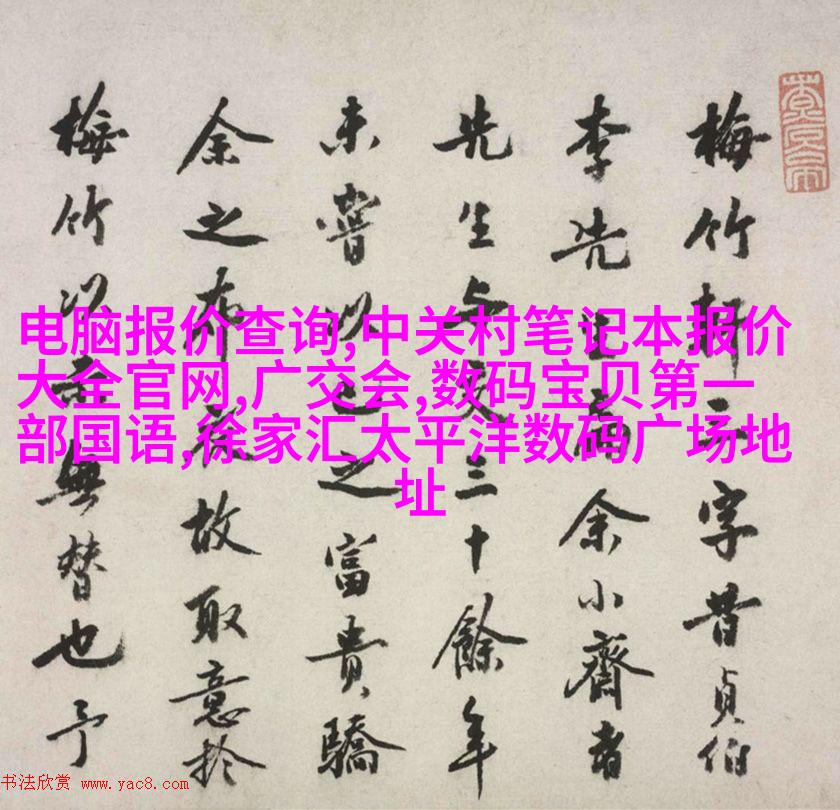 电脑报价查询,中关村笔记本报价
大全官网,广交会,数码宝贝第一
部国语,徐家汇太平洋数码广场地
址
梅竹字昔貞伯
李先余小齋書
先生与交三十餘年
未嘗以之富貴驕
余之布衣故取意於
梅竹以無替也予
书法欣赏 www.yac8.com